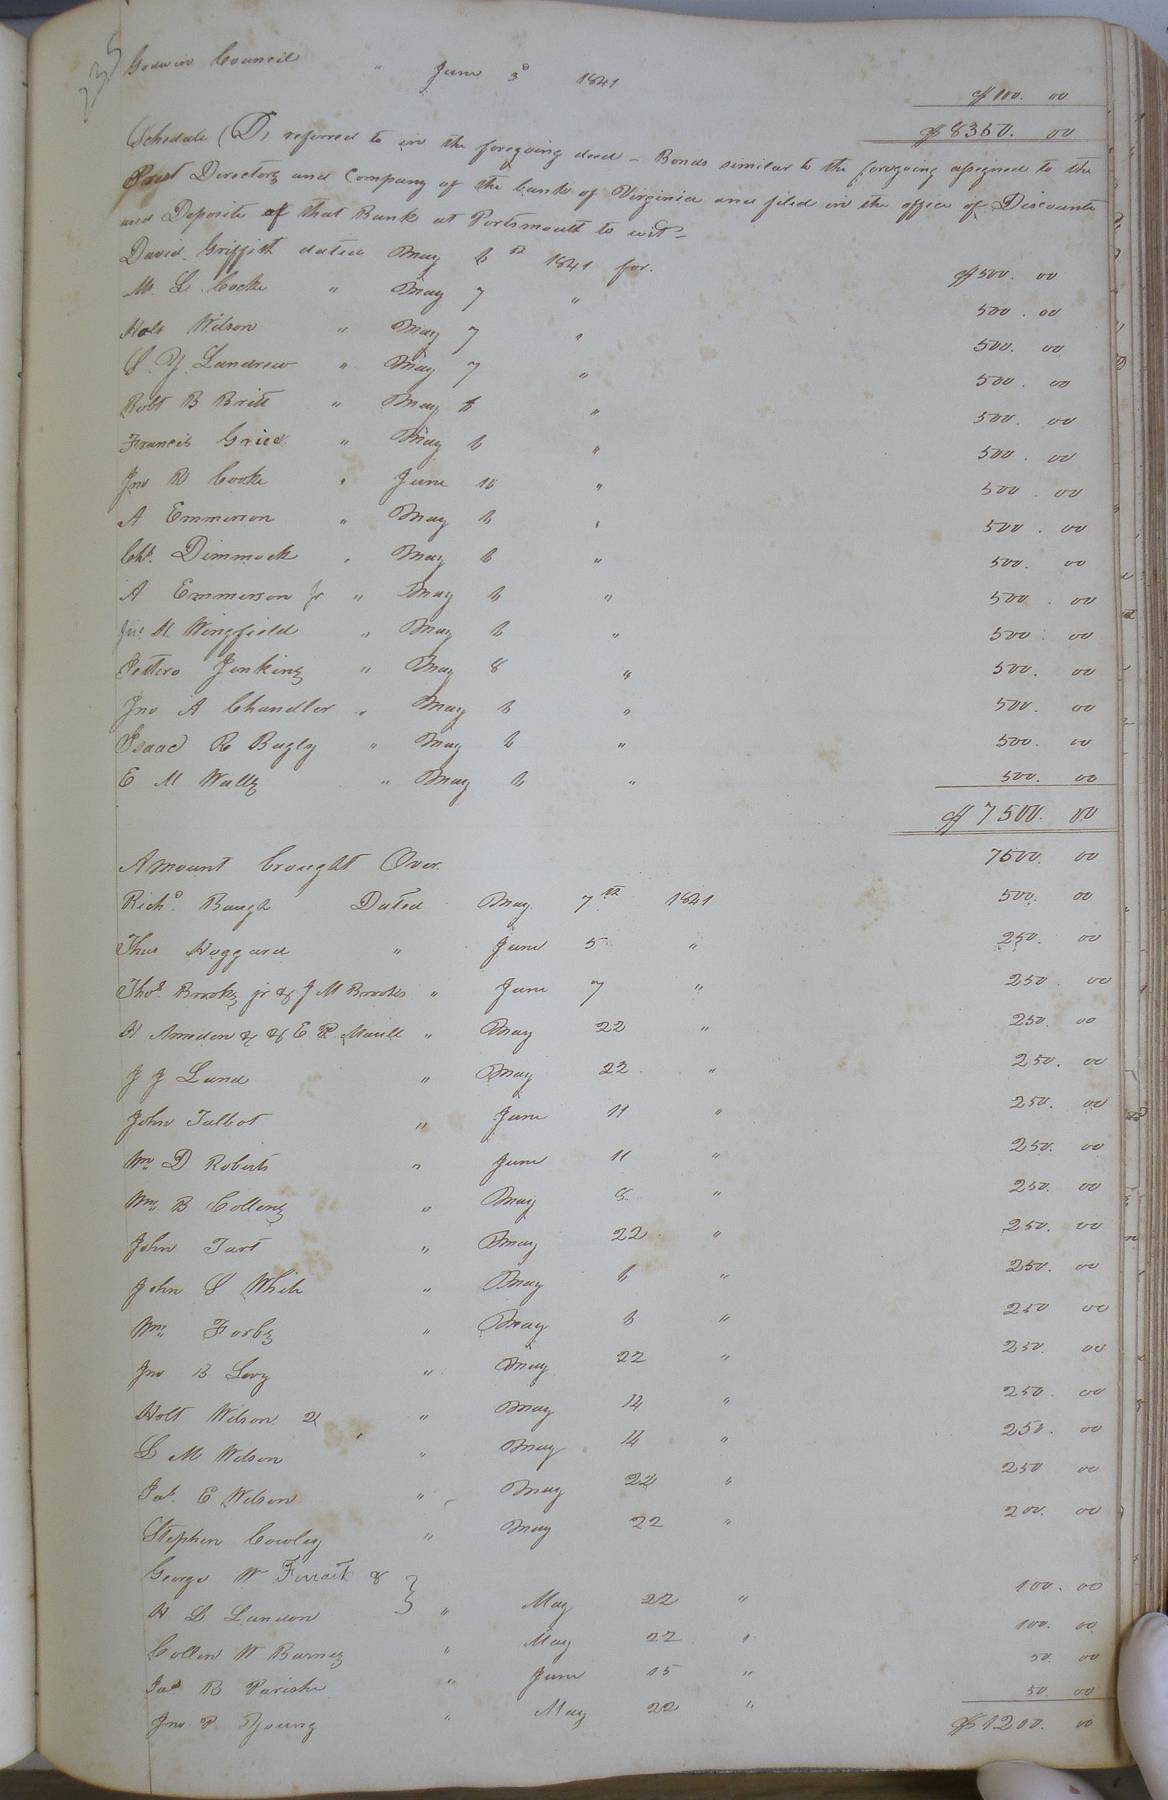 235
Godwin Council " June 3d 1841 $100. 00
$8350. 00
Schedule (D) referred to in the foregoing deed - Bonds similar to the foregoing assigned to the
Prest Directors and Company of the bank of Virginia and filed in the office of Discounts
and Deposite of that Bank at Portsmouth to wit -
David Griffith dated May 6th 1841 for. $500. 00
M L Cocke " May 7 " 500. 00
Holt Wilson " May 7 " 500. 00
May 7 " 500. 00
Robt B Britt " May 6 " 500. 00
Francis Grice " May 6 " 500. 00
Jno R Cooke " June 10 " 500. 00
A Emmerson " May 6 " 500. 00
Chs. Dimmock " May 6 " 500. 00
A Emmerson Jr " May 6 " 500. 00
Jno H. Wingfield " May 6 " 500. 00
Jenkins " May 8 " 500. 00
Jno A Chandler " May 6 " 500. 00
Isaac R Bagly " May 6 " 500. 00
E M Watts " May 6 " 500. 00
$7500. 00
Amount brought Over. 7500. 00
Richd. Baugh Dated May 7th 1841 500. 00
Thos Hoggard " June 5 " 250. 00
Thos. Brooks jr & J M Brooks " June 7 " 250. 00
& E R. Maull " May 22 " 250. 00
J J Lund " May 22 " 250. 00
John Talbot " June 11 " 250. 00
Wm D Roberts " June 11 " 250. 00
Wm. B Collins " May 8 " 250. 00
John Tart " May 22 " 250. 00
John S White " May 6 " 250. 00
Wm. Forbs " May 6 " 250 00
Jno B Levy " May 22 " 250. 00
Holt Wilson " May 14 " 250. 00
L M Wilson " May 14 " 250. 00
Jas. E Wilson " May 22 " 250 00
Stephen Cowley " May 22 " 200. 00
George W &
H L Landon } " May 22 " 100. 00
Collin W Barnes " May 22 " 100. 00
Jas R Parish " June 15 " 50. 00
Jno P Young " May 22 " 50. 00
$1200. 00